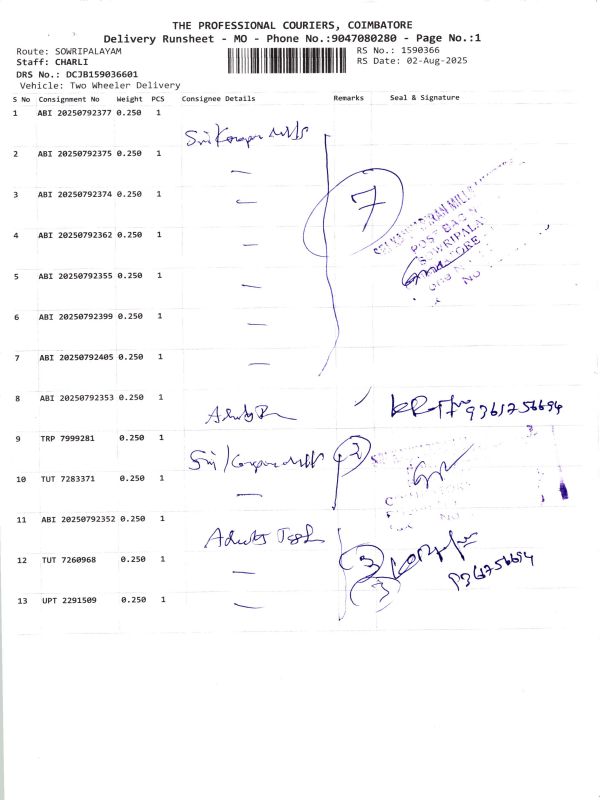 THE PROFESSIONAL COURIERS, COIMBATORE
Delivery Runsheet - MO - Phone No.:9047080280 - Page No.:1
Route: SOWRIPALAYAM RS No.: 1590366
Staff: CHARLI RS Date: 02-Aug-2025
DRS No.: DCJB159036601
Vehicle: Two Wheeler Delivery
S No Consignment No Weight PCS Consignee Details Remarks Seal & Signature
1 ABI 20250792377 0.250 1
2 ABI 20250792375 0.250 1
3 ABI 20250792374 0.250 1
7
4 ABI 20250792362 0.250 1
5 ABI 20250792355 0.250 1
6 ABI 20250792399 0.250 1
7 ABI 20250792405 0.250 1
8 ABI 20250792353 0.250 1
9361756694
9 TRP 7999281 0.250 1
2
10 TUT 7283371 0.250 1
11 ABI 20250792352 0.250 1
12 TUT 7260968 0.250 1
3
9361756694
13 UPT 2291509 0.250 1
3